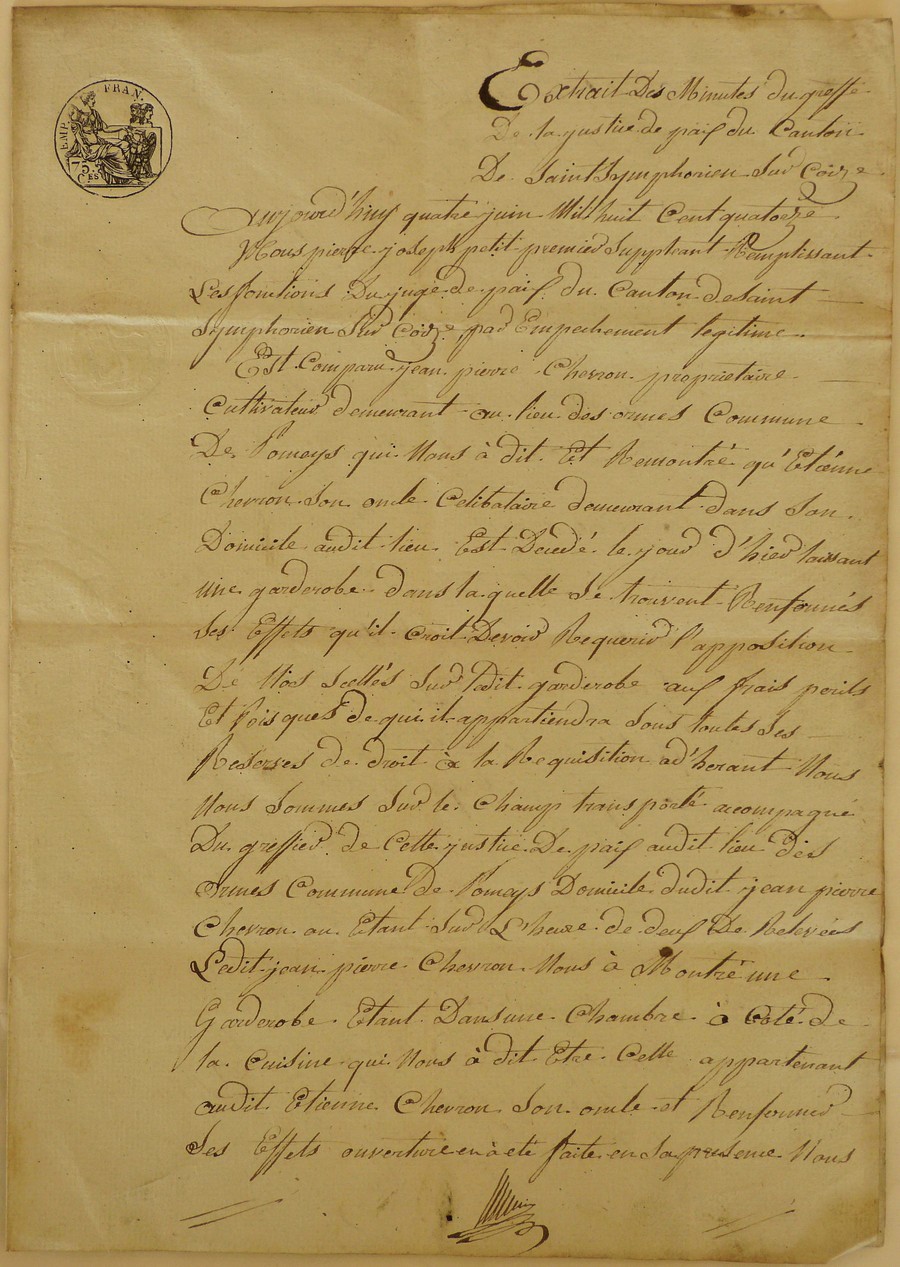 EMP. FRAN.
75.
C.ES
Extrait Des Minutes du greffe
De la justice de paix du Canton
De Saint Symphorien Sur Coize
Aujourd'huy quatre juin Mil huit Cent quatorze
Nous pierre joseph petit premier Suppleant Remplissant
Les fonctions Du juge de paix du Canton de Saint
Symphorien Sur Coize par Empechement legitime.
Est Comparu jean pierre Chevron proprietaire
Cultivateur demeurant au lieu des ormes Commune
De Pomeys qui Nous à dit Et Remontré qu'Etiénne
Chevron Son oncle Celibataire demeurant dans Son
Domicile audit lieu Est Decedé le jour d'hier laissant
une garderobe dans la quelle Se trouvent Renfermés
Ses Effets qu'il croit Devoir Requerir l'apposition
De Nos Scellés Sur Ladit garderobe aux frais perils
Et Risques de qui il appartiendra Sous toutes Ses
Reserves de droit à la Requisition ad'herant Nous
Nous Sommes Sur le Champ transporté acompagné
Du greffier de Cette justice De paix audit lieu des
ormes Commune de Pomeys Domicile dudit jean pierre
Chevron ou Etant Sur L'heure de deux De Relevées
Ledit jean pierre Chevron Nous à Montré une
Garderobe Etant Dans une Chambre à Coté de
la Cuisine qui Nous à dit Etre Celle appartenant
audit Etienne Chevron Son oncle et Renfermer
Ses Effets ouverture en à eté faite en Sa presence Nous